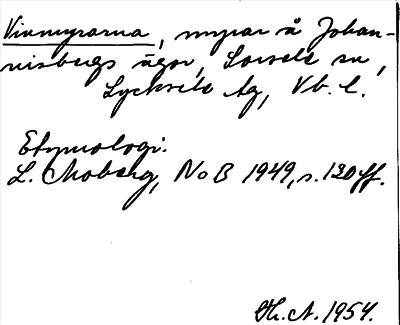 Vinmyrarna, myrar å Johan-
nisbergs ägor, Sorsele sn,
Lycksele lg, Vb. l.
Etymologi:
L. Moberg, NoB 1949, s. 130 ff.
1954.